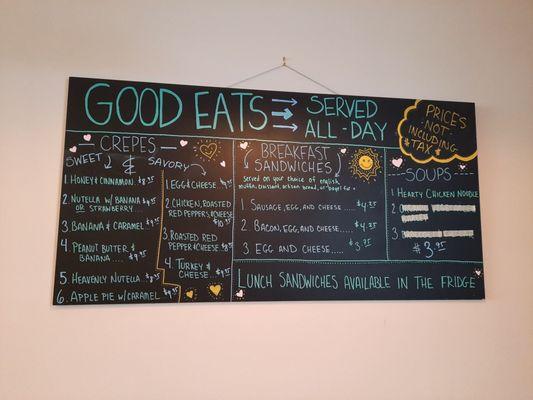 GOOD EATS → SERVED
ALL-DAY
PRICES
NOT
INCLUDING
TAX
CREPES
SWEET & SAVORY
1. HONEY & CINNAMON
2. NUTELLA W/ BANANA
OR STRAWBERRY
3. BANANA & CARAMEL
4. PEANUT BUTTER &
BANANA
5. HEAVENLY NUTELLA
6. APPLE PIE W/ CARAMEL
1. EGG & CHEESE
2. CHICKEN, ROASTED
RED PEPPERS, & CHEESE
3. ROASTED RED
PEPPER & CHEESE
4. TURKEY &
CHEESE
BREAKFAST
SANDWICHES
SERVED ON YOUR CHOICE OF ENGLISH
1 SAUSAGE, EGG, AND CHEESE
2 BACON, EGG, AND CHEESE
3 EGG AND CHEESE
SOUPS
1 HEARTY CHICKEN NOODLE
2
3
LUNCH SANDWICHES AVAILABLE IN THE FRIDGE